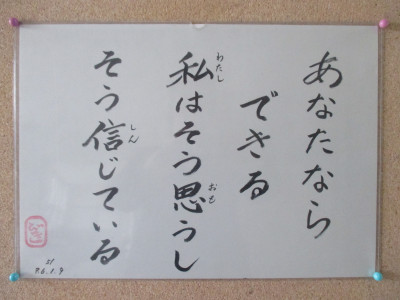 あなたなら
できる
私はそう思うし
わたし
おも
そう信じている
しん